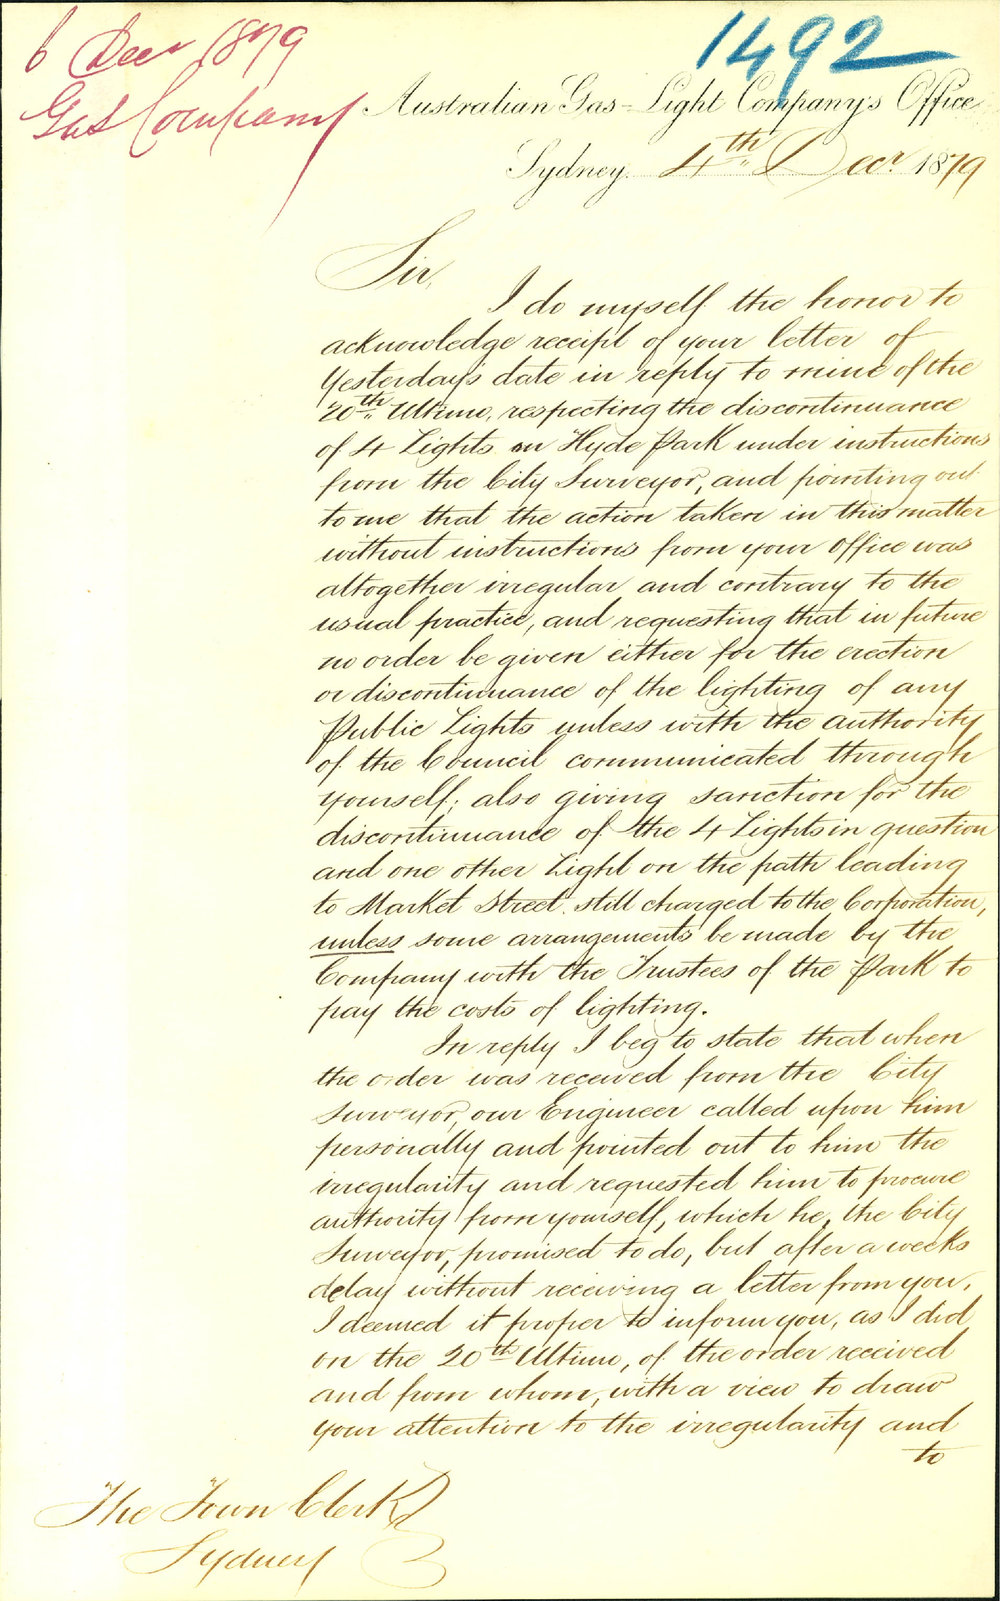 6 Decr 1879
Gas Company
1492
Australian Gas-Light Company's Office
Sydney. 4th Decr. 1879
Sir,
I do myself the honor to
acknowledge receipt of your letter of
Yesterday's date in reply to mine of the
20th Ultimo, respecting the discontinuance
of 4 Lights in Hyde Park under instructions
from the City Surveyor, and pointing out
to me that the action taken in this matter
without instructions from your Office was
altogether irregular and contrary to the
usual practice, and requesting that in future
no order be given either for the erection
or discontinuance of the lighting of any
Public Lights unless with the authority
of the Council communicated through
yourself; also giving sanction for the
discontinuance of the 4 Lights in question
and one other Light on the path leading
to Market Street still charged to the Corporation,
unless some arrangements be made by the
Company with the Trustees of the Park to
pay the costs of lighting.
In reply I beg to state that when
the order was received from the City
Surveyor, our Engineer called upon him
personally and pointed out to him the
irregularity and requested him to procure
authority from yourself, which he, the City
Surveyor, promised to do, but after a weeks
delay without receiving a letter from you,
I deemed it proper to inform you, as I did
on the 20th Ultimo, of the order received
and from whom, with a view to draw
your attention to the irregularity and
to
The Town Clerk
Sydney